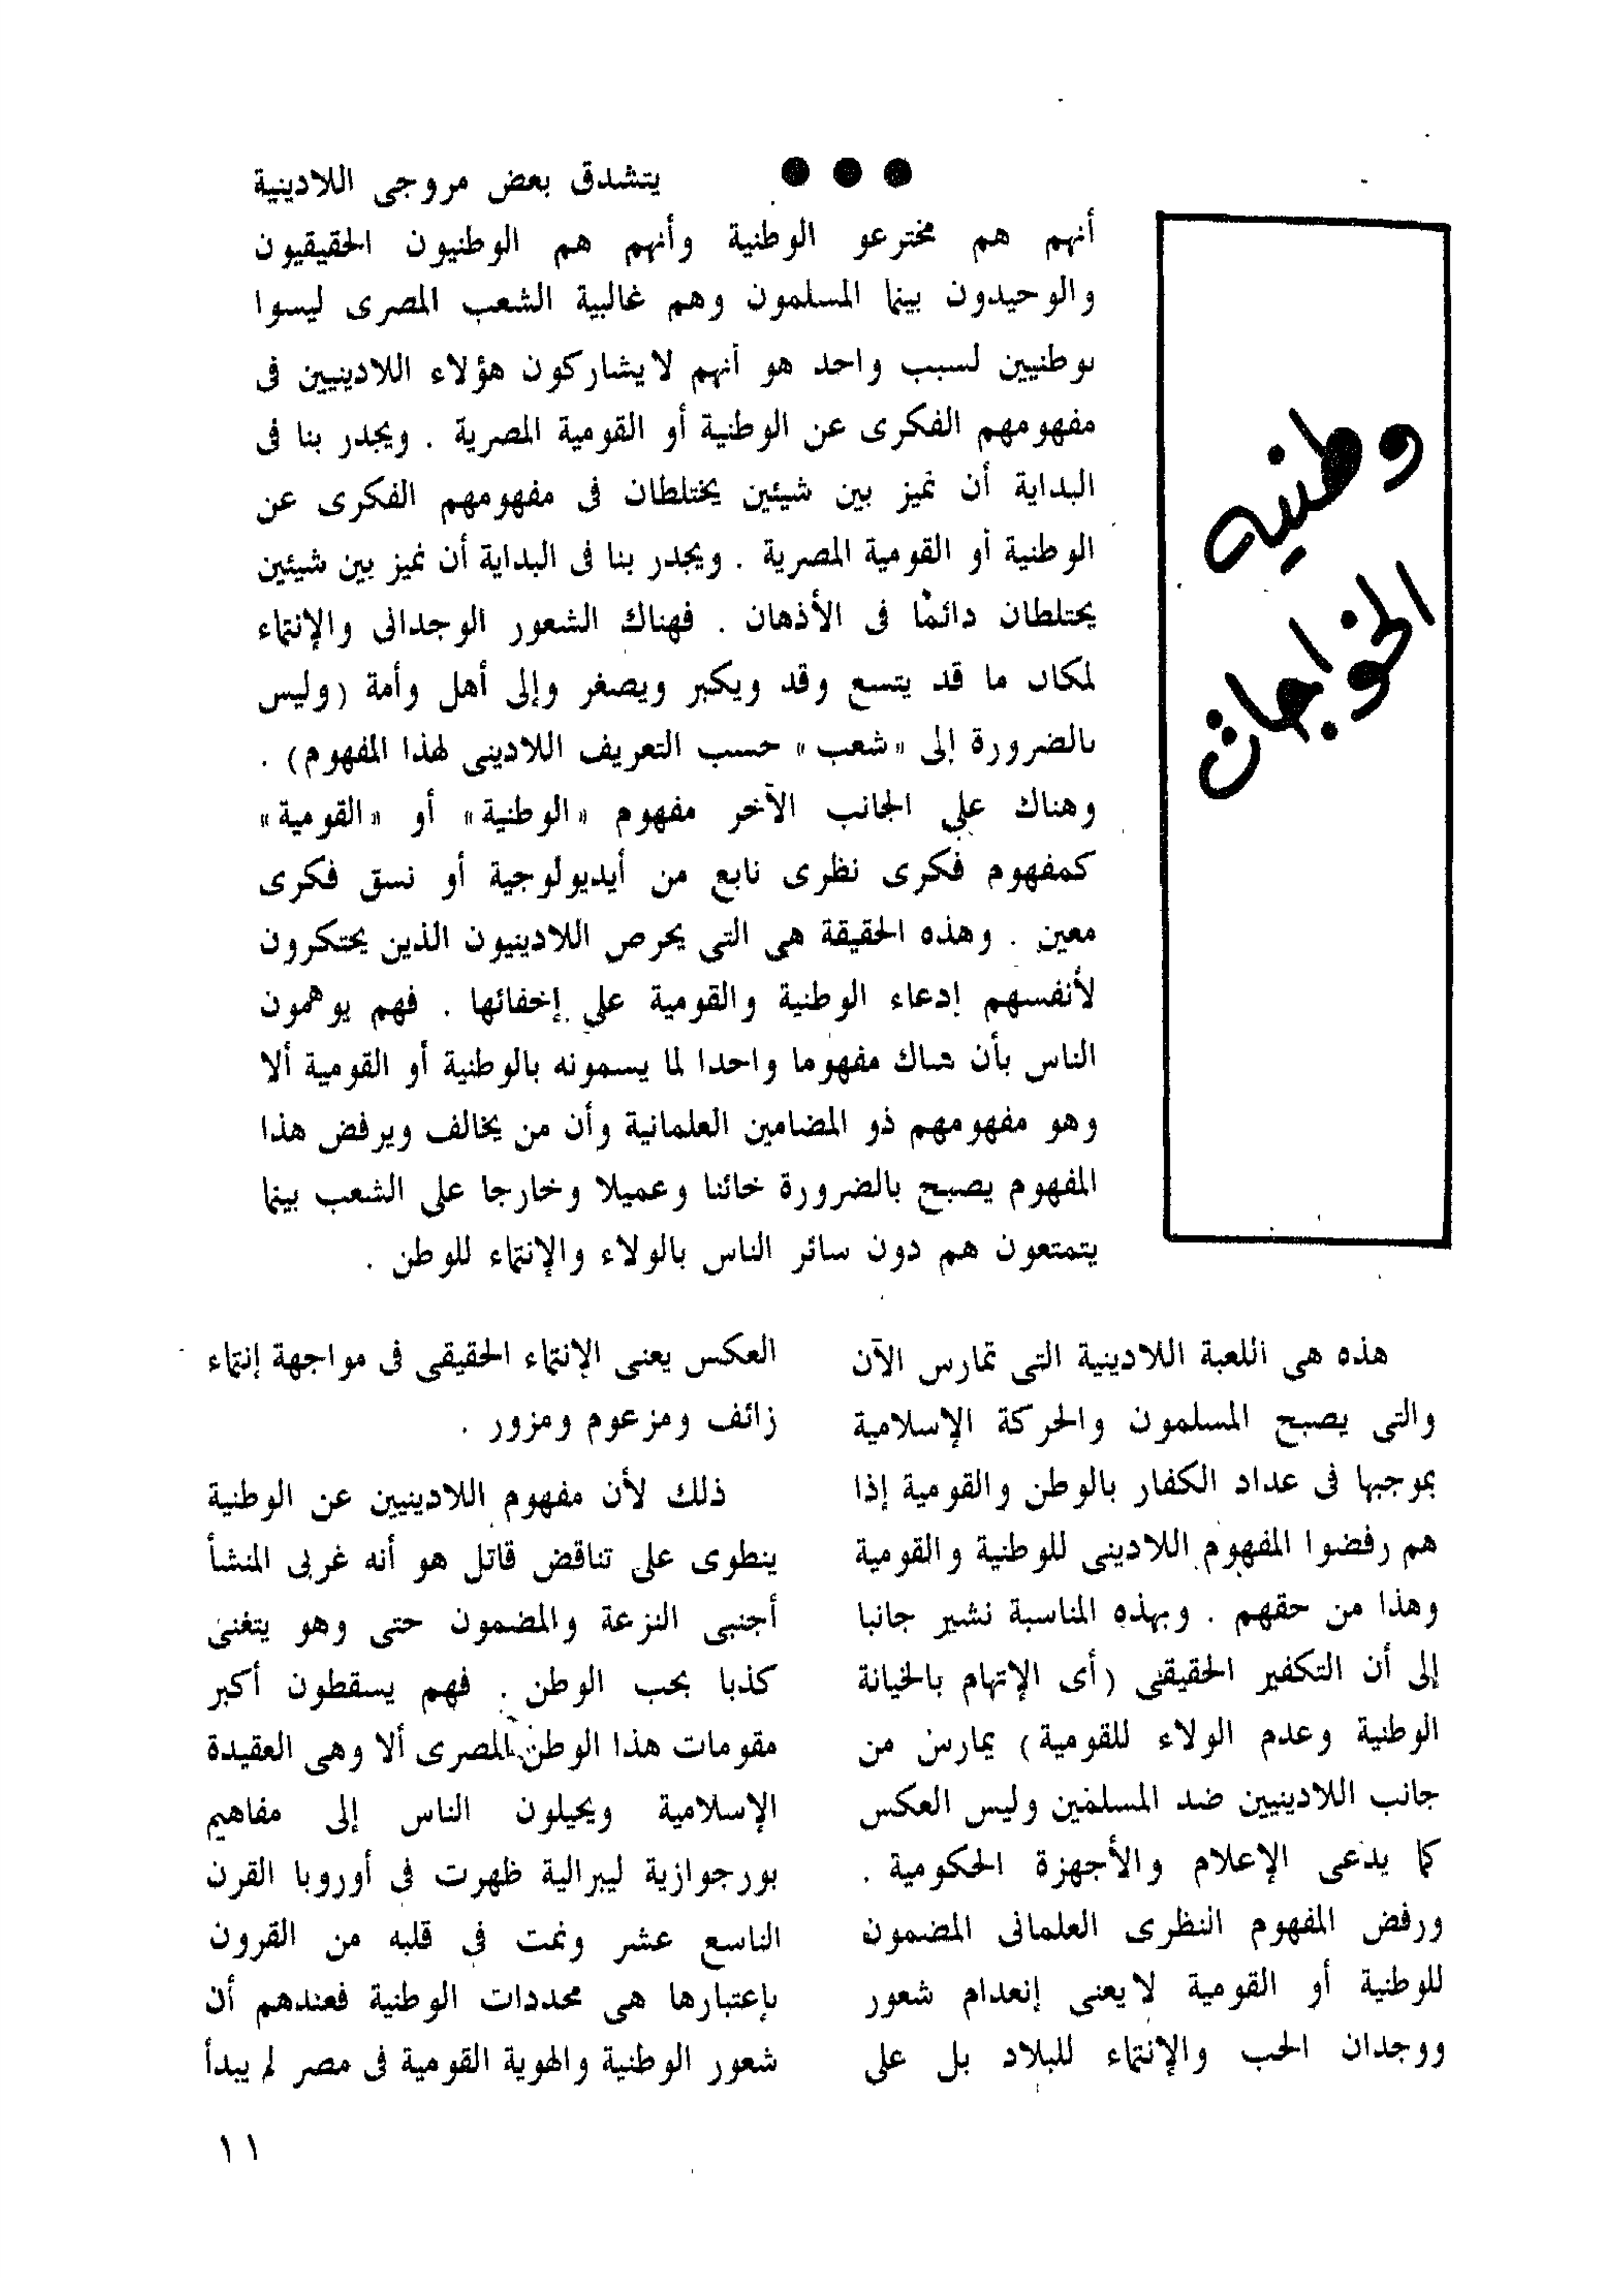 وطنيه
الخواجات
●●● يتشدق بعض مروجى اللادينية
أنهم هم مخترعو الوطنية وأنهم هم الوطنيون الحقيقيون
والوحيدون بينما المسلمون وهم غالبية الشعب المصرى ليسوا
بوطنيين لسبب واحد هو أنهم لايشاركون هؤلاء اللادينيين فى
مفهومهم الفكرى عن الوطنية أو القومية المصرية . ويجدر بنا فى
البداية أن نميز بين شيئين يختلطان فى مفهومهم الفكرى عن
الوطنية أو القومية المصرية . ويجدر بنا فى البداية أن نميز بين شيئين
يختلطان دائما فى الأذهان . فهناك الشعور الوجدانى والإنتماء
لمكان ما قد يتسع وقد ويكبر ويصغر وإلى أهل وأمة (وليس
بالضرورة إلى «شعب» حسب التعريف اللادينى لهذا المفهوم) .
وهناك على الجانب الآخر مفهوم «الوطنية» أو «القومية»
كمفهوم فكرى نظرى نابع من أيديولوجية أو نسق فكرى
معين . وهذه الحقيقة هى التى يحرص اللادينيون الذين يحتكرون
لأنفسهم إدعاء الوطنية والقومية على إخفائها . فهم يوهمون
الناس بأن هناك مفهوما واحدا لما يسمونه بالوطنية أو القومية ألا
وهو مفهومهم ذو المضامين العلمانية وأن من يخالف ويرفض هذا
المفهوم يصبح بالضرورة خائنا وعميلا وخارجا على الشعب بينما
يتمتعون هم دون سائر الناس بالولاء والإنتماء للوطن .
هذه هى اللعبة اللادينية التى تمارس الآن
والتى يصبح المسلمون والحركة الإسلامية
بموجبها فى عداد الكفار بالوطن والقومية إذا
هم رفضوا المفهوم اللادينى للوطنية والقومية
وهذا من حقهم . وبهذه المناسبة نشير جانبا
إلى أن التكفير الحقيقى (أى الإتهام بالخيانة
الوطنية وعدم الولاء للقومية) يمارس من
جانب اللادينيين ضد المسلمين وليس العكس
كما يدعى الإعلام والأجهزة الحكومية .
ورفض المفهوم النظرى العلمانى المضمون
للوطنية أو القومية لايعنى إنعدام شعور
ووجدان الحب والإنتماء للبلاد بل على
العكس يعنى الإنتماء الحقيقى فى مواجهة إنتماء
زائف ومزعوم ومزور .
ذلك لأن مفهوم اللادينيين عن الوطنية
ينطوى على تناقض قاتل هو أنه غربى المنشأ
أجنبى النزعة والمضمون حتى وهو يتغنى
كذبا بحب الوطن . فهم يسقطون أكبر
مقومات هذا الوطن المصرى ألا وهى العقيدة
الإسلامية ويحيلون الناس إلى مفاهيم
بورجوازية ليبرالية ظهرت فى أوروبا القرن
الناسع عشر ونمت فى قلبه من القرون
بإعتبارها هى محددات الوطنية فعندهم أن
شعور الوطنية والهوية القومية فى مصر لم يبدأ
١١